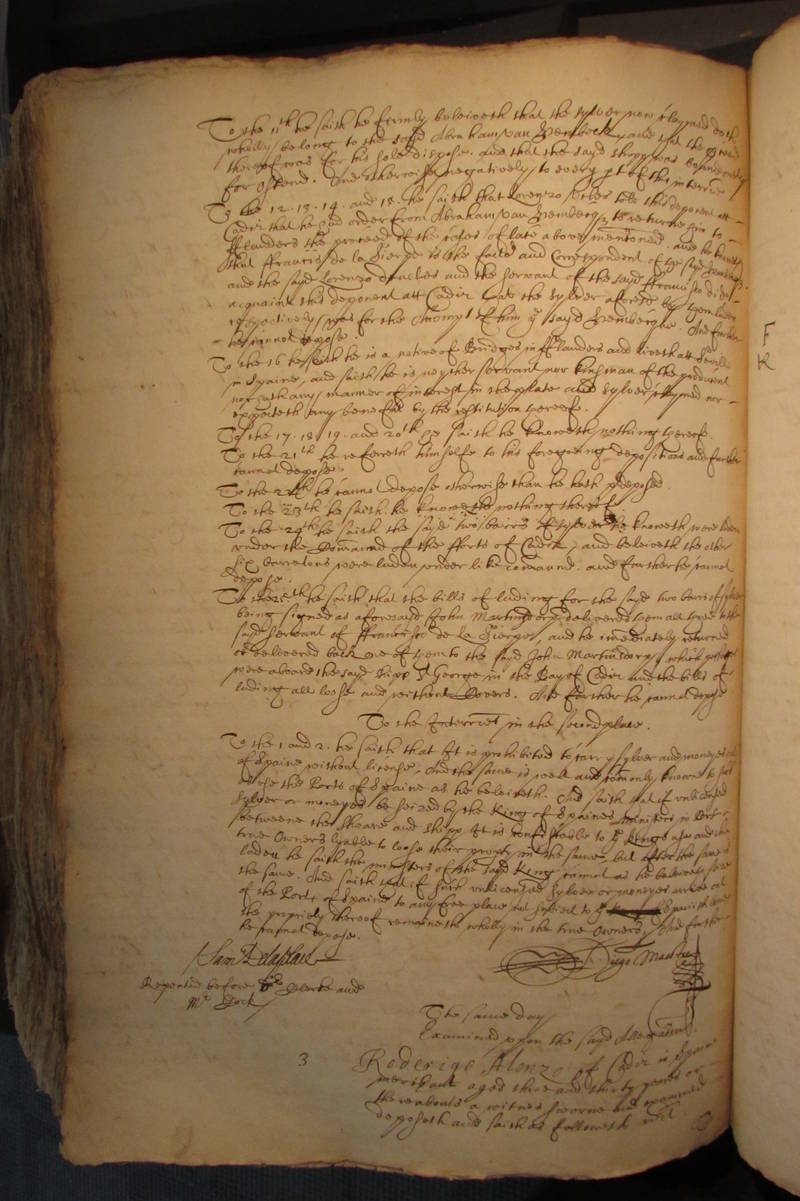 To the 11th he saith he firmly beleiveth that the sylver now claymed doth
wholly belong to the sayd Abraham van and that the
thereof was for his sole dispose. And that the sayd shipp was bound
for Ostend. And otherwise negatively to every pt of this interrie
To the 12. 13. 14. and 15. he saith that Lorenzo told this deponent att
Cadiz that he had order from Abraham van Hemberg to returne him to
fflanders the proceed of the sales of late above mentioned and he
that ffrancis de la Sierge is the factor and Correspondent of the sayd
and the sayd Lorenzo and the servant of the sayd ffrancisco did
acquaint this deponent att Cadiz that the sylver aforesd by them laden
respectively was for the Accompt of him ye sayd. And further
he cannot depose.
To the 16 he saith he is a native of Bruidges in fflanders and liveth at Sevill
in Spaine, and saith he is neyther servant nor kinsman of the producent
nor hath any manner of interest in the plate and sylver claymed nor
expecteth any benefit by the restitution thereof.
To the 17. 18 19. and 20th he saith he knoweth nothing thereof.
To the 21th he referreth himselfe to his foregoeing depositions and further
cannot depose.
To the 22th he cannot depose otherwise than he hath p deposed
To the 23th he saith he knoweth nothing thereof
To the 24th he saith the sayd two barrs of sylver he knoweth were laden
under the Command of the fforts of Cadiz, and beleiveth the other
six barretons were laden under like command. and further he cannot
depose.
To the 25th he saith that the bills of lading for the sayd two barrs of sylver
being signed as aforesayd John Martindorp delivered them all three to the
sayd servant of ffrancisco de la Sierges, and he immediately returned
or delivered back one of them to the sayd John Martindorp, which
were aboard the sayd shipp St George in the Bay of Cadiz and the bills of
lading all loose and without Covers. And further he cannot depose
To the Interries in the second place.
To the 1 and 2. he saith that it is prohibited to carry sylver and moneyes out
of Spaine without license, And the same is well and comonly knowne to such
as use the Ports of Spaine as he beleiveth. And saith that if unlicensed
sylver or moneyes be seized by the King of Spaines ministers in Port
betweene the shoare and shipp it is confiscable to ye Kings use and the
true Owners lyable to loose their propty in the same, but after the same is
laden he saith the ministers of the sayd King cannot as he beleiveth seize
the same. And saith that if such unlicensed sylver or moneyes arrive out
of the Ports of Spaine to any free place not subject to ye Spanish
the propriety thereof remaineth wholly in the true Owners. And further
he cannot depose.
Diego Martin
Repeated before Clerke and
Mr Dock
The same day
Examined upon the sayd Allegation.
3
Roderigo Alonzo of Cadiz in Spaine
merchant aged three and thirty yeares or
thereabouts a witnes sworne and examined
deposeth and saith as followeth vizt
F
K